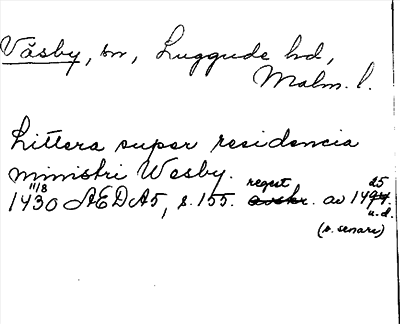 Väsby, sn, Luggude hd,
Malm. l.
Littera super residencia
ministri Wesby.
11/8 regest 25
1430 AEDA5, s. 155. avskr. av 1494.
u.d.
(s. senare)